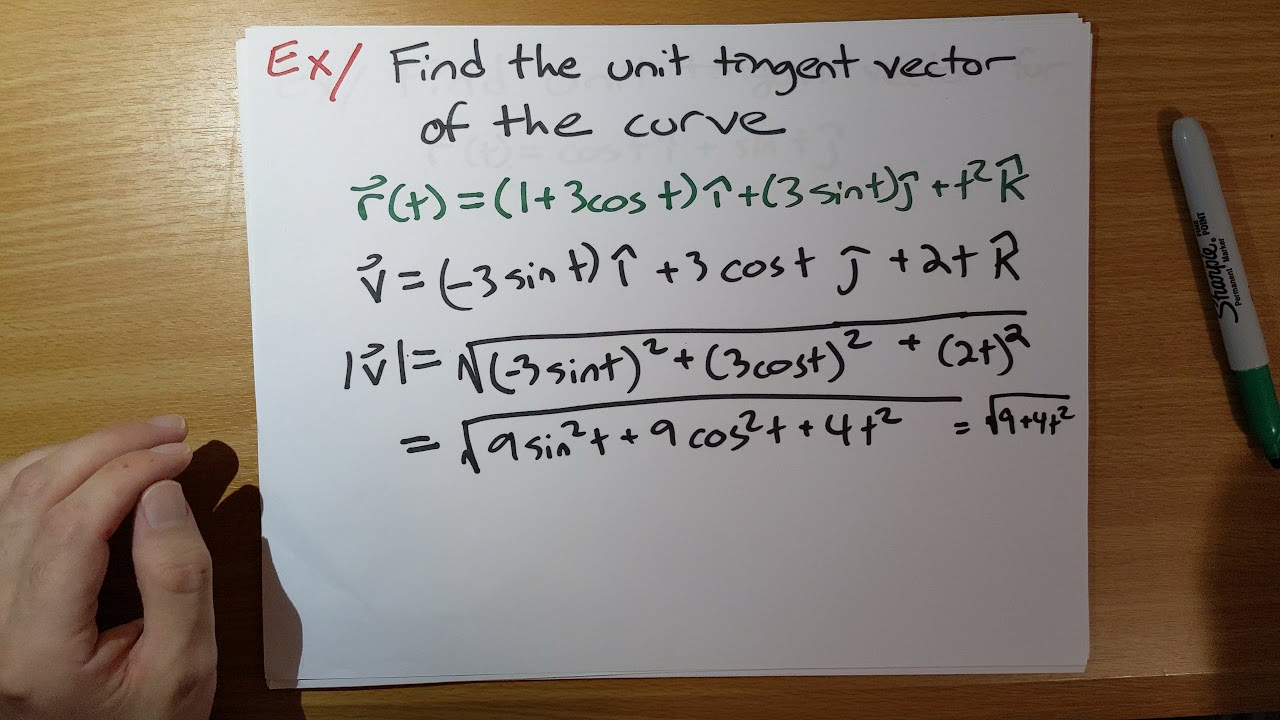 Ex/ Find the unit tangent vector
of the curve
r⃗(t) = (1+3cos t) î + (3 sin t) ĵ + t² k̂
v⃗ = (-3 sin t) î + 3 cos t ĵ + 2t k̂
|v⃗| = √((-3 sin t)² + (3cos t)² + (2t)²)
= √(9 sin² t + 9 cos² t + 4t²) = √(9+4t²)
Sharpie
FINE POINT
Permanent Marker